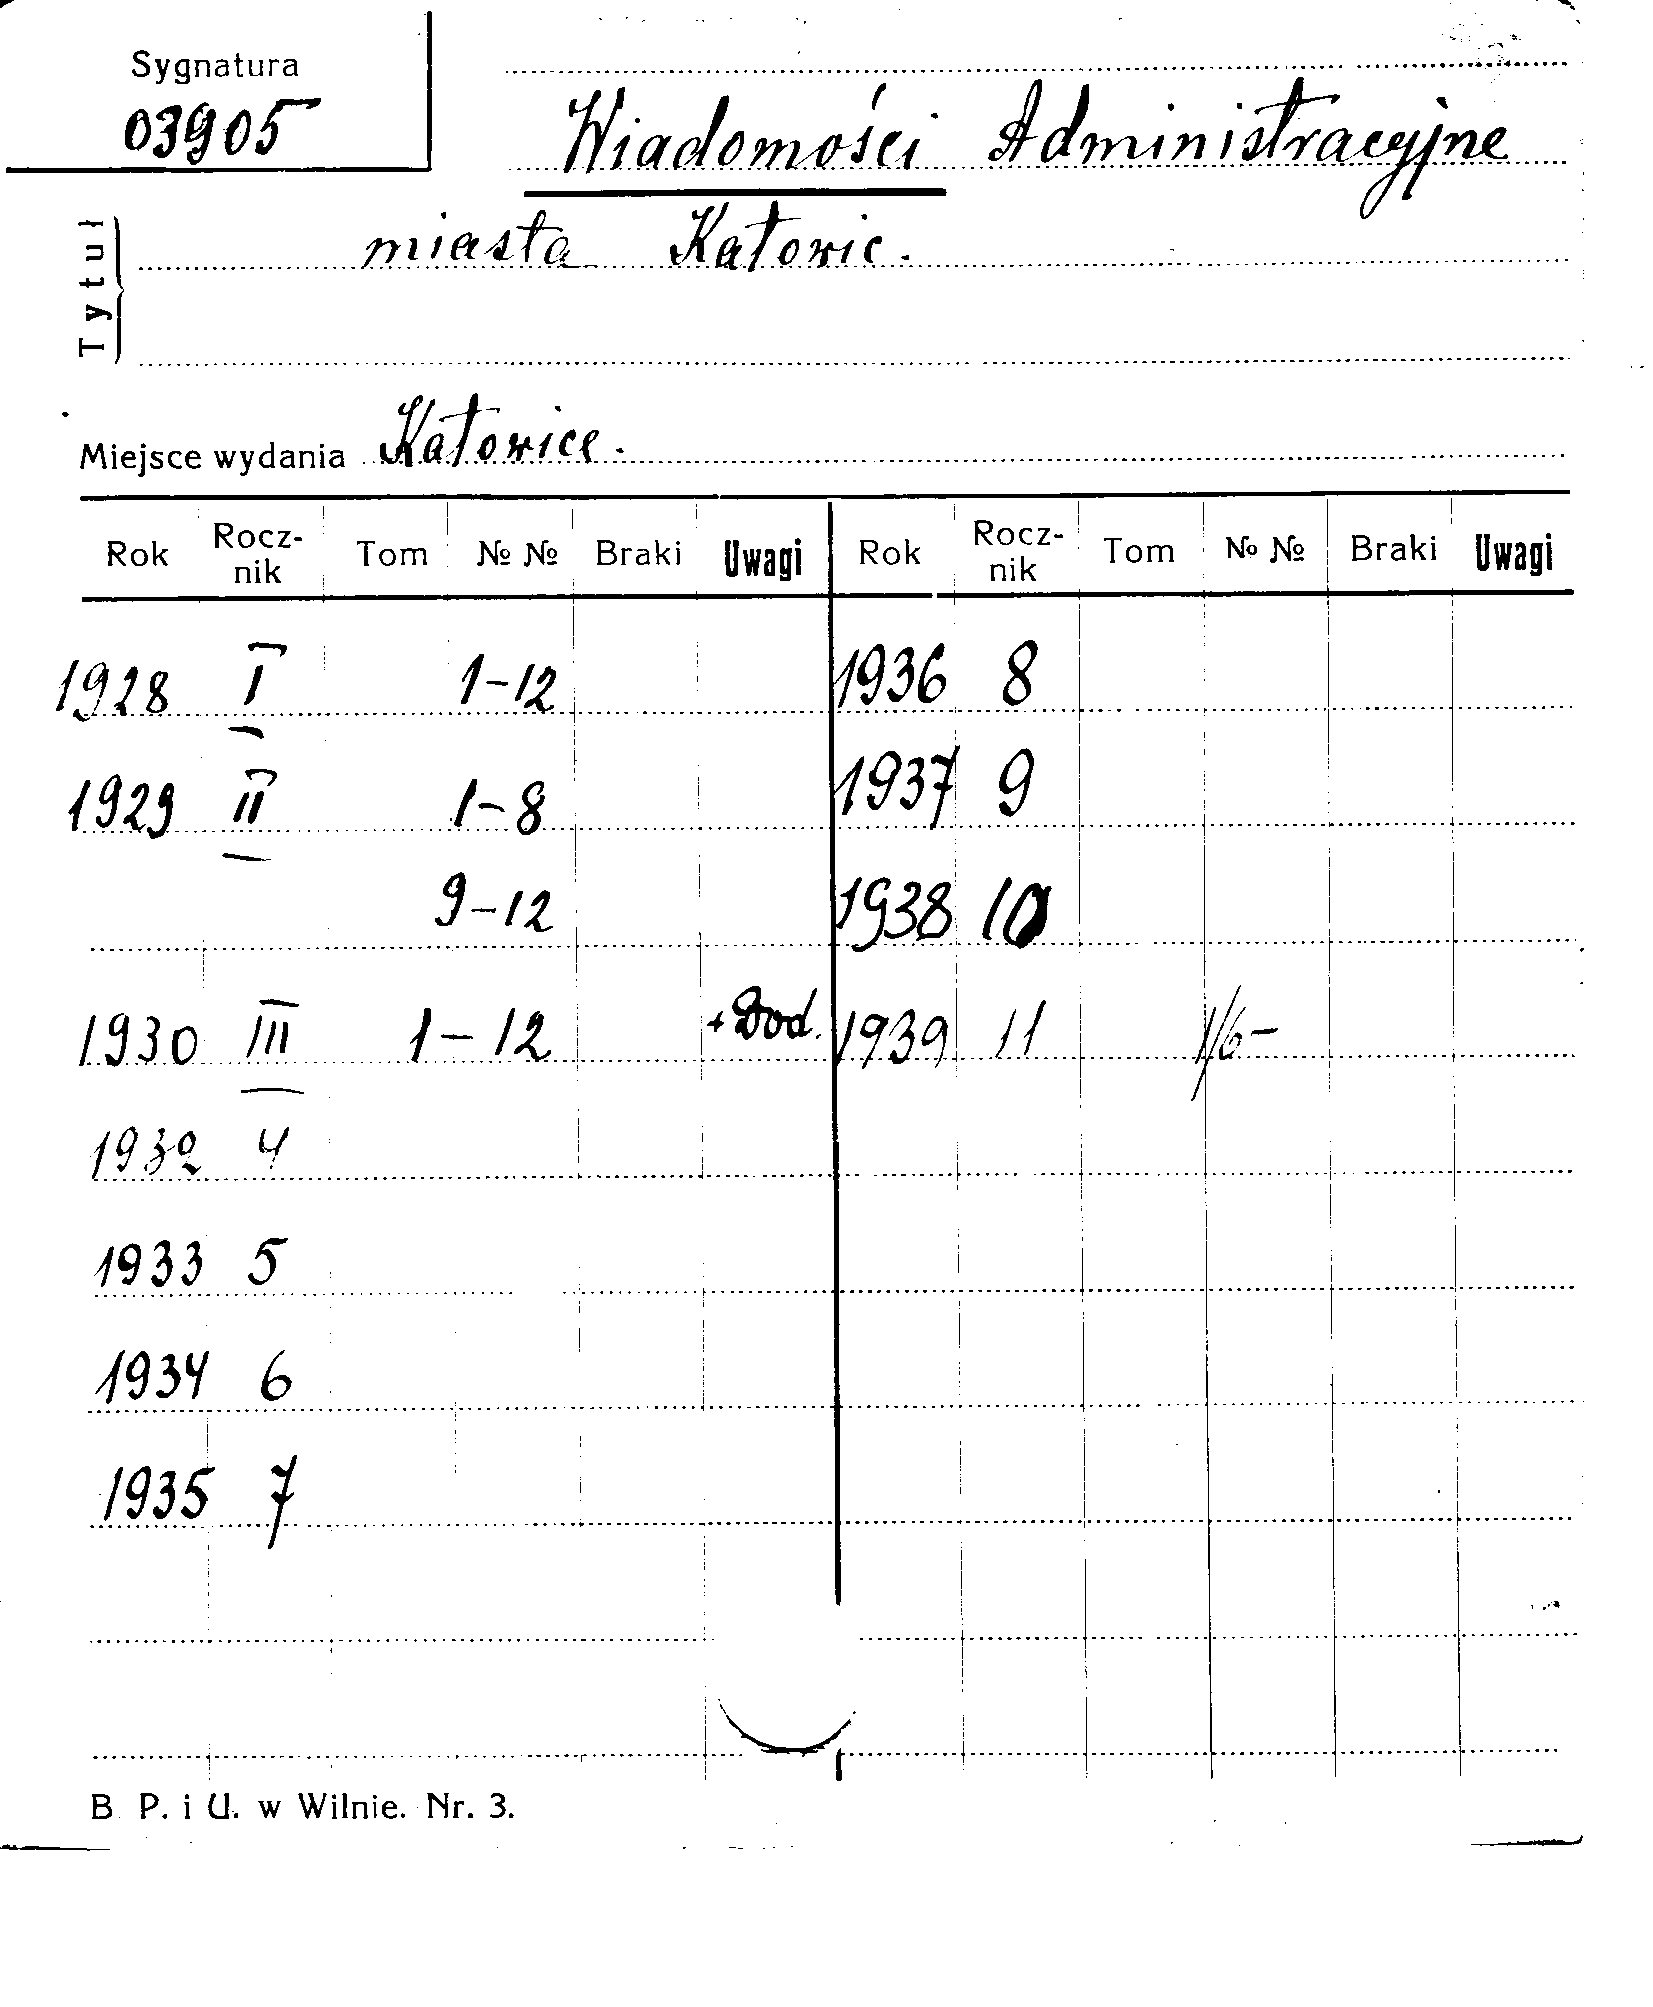 Sygnatura
03905
Wiadomości Administracyjne
miasta Katowic.
Tytuł
Miejsce wydania Katowice.
Rok Rocz-nik Tom № № Braki Uwagi Rok Rocz-nik Tom № № Braki Uwagi
1928 I 1-12 1936 8
1929 II 1-8 1937 9
9-12 1938 10
1930 III 1-12 + Dod. 1939 11 1/6-
1932 4
1933 5
1934 6
1935 7
B P. i U. w Wilnie. Nr. 3.